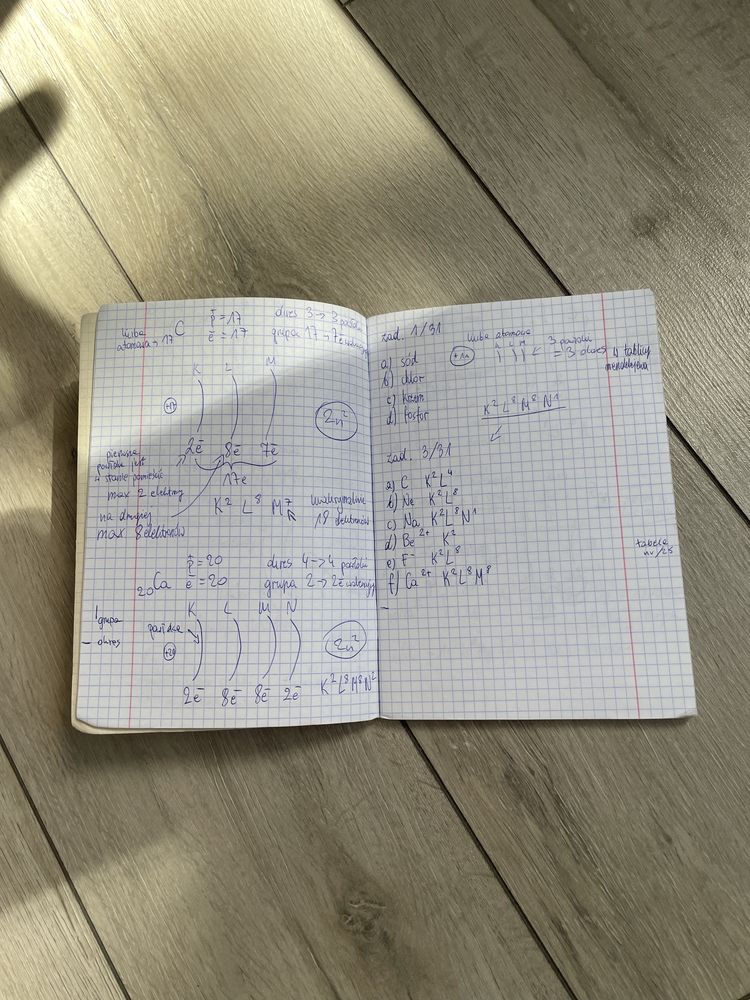 liczba atomowa → 17 C p̄ = 17 okres 3 → 3 powłoki
ē = 17 grupa 17 → 7ē
K L M
+17
2n²
2ē 8ē 7ē
17ē
pierwsza
powłoka jest
w stanie pomieścić
max 2 elektrony
na drugiej
max 8 elektronów
K² L⁸ M⁷
maksymalnie
18 elektronów
20Ca p̄ = 20 okres 4 → 4 powłoki
ē = 20 grupa 2 → 2ē
K L M N
| grupa
— okres
powłoka
+20
2n²
2ē 8ē 8ē 2ē K²L⁸M⁸N²
zad. 1/31
liczba atomowa
+11 K L M ← 3 powłoki
= 3 okres w tablicy
mendelejewa
a) sód
b) chlor
c) krzem
d) fosfor
K² L⁸ M⁸ N¹
zad. 3/31
a) C K²L⁴
b) Ne K²L⁸
c) Na K²L⁸N¹
d) Be²⁺ K²
e) F⁻ K²L⁸
f) Ca²⁺ K²L⁸M⁸
tabela